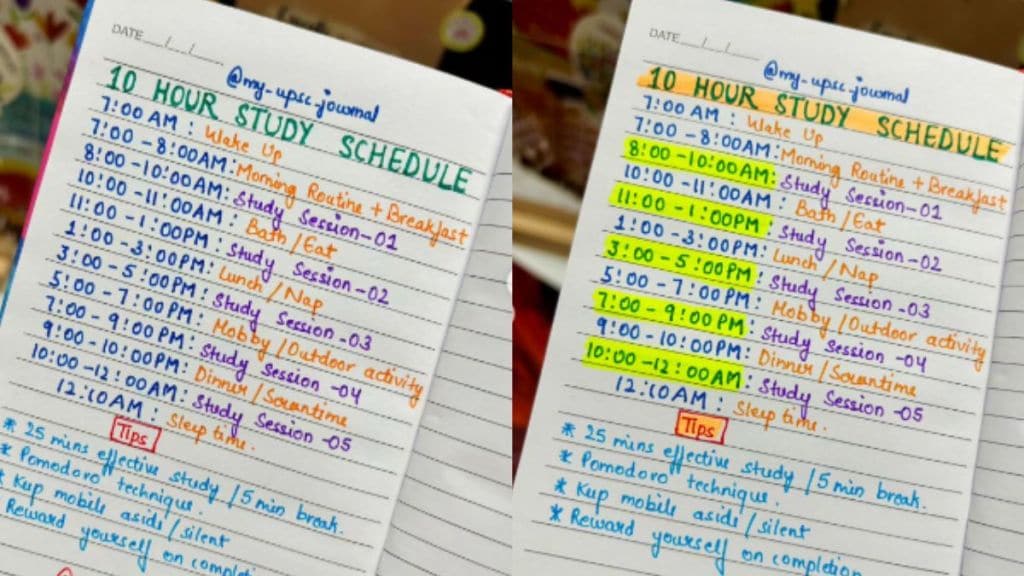 DATE__/__/__
@my-upsc-journal
10 HOUR STUDY SCHEDULE
7:00 AM : Wake Up
7:00 - 8:00AM: Morning Routine + Breakfast
8:00 - 10:00AM: Study Session-01
10:00 - 11:00AM : Bath/Eat
11:00 - 1:00PM : Study Session-02
1:00 - 3:00PM: Lunch/Nap
3:00 - 5:00PM : Study Session-03
5:00 - 7:00PM: Hobby/Outdoor activity
7:00 - 9:00PM : Study Session-04
9:00 - 10:00PM: Dinner/Screentime
10:00 - 12:00AM : Study Session-05
12:10AM : Sleep time.
Tips
* 25 mins effective study /5 min break.
* Pomodoro technique.
* Keep mobile aside/silent
Reward yourself on completi
DATE__/__/__
@my-upsc-journal
10 HOUR STUDY SCHEDULE
7:00 AM : Wake Up
7:00 - 8:00AM: Morning Routine + Breakfast
8:00 - 10:00AM: Study Session-01
10:00 - 11:00AM : Bath/Eat
11:00 - 1:00PM : Study Session-02
1:00 - 3:00PM: Lunch/Nap
3:00 - 5:00PM : Study Session-03
5:00 - 7:00PM: Hobby/Outdoor activity
7:00 - 9:00PM : Study Session-04
9:00 - 10:00PM: Dinner/Screentime
10:00 - 12:00AM : Study Session-05
12:10AM : Sleep time.
Tips
* 25 mins effective study /5 min break.
* Pomodoro technique.
* Keep mobile aside/silent
* Reward yourself on completion